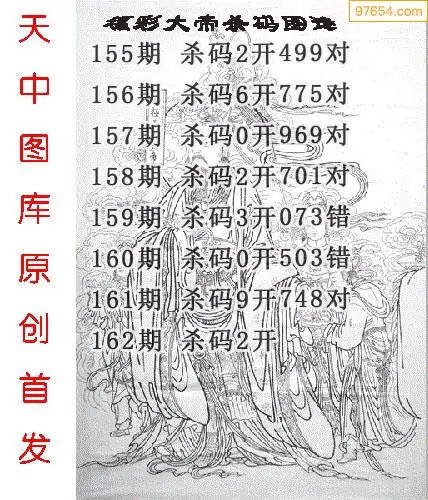 97654.com
福彩大帝杀码图
天中图库原创首发
155期 杀码2开499对
156期 杀码6开775对
157期 杀码0开969对
158期 杀码2开701对
159期 杀码3开073错
160期 杀码0开503错
161期 杀码9开748对
162期 杀码2开